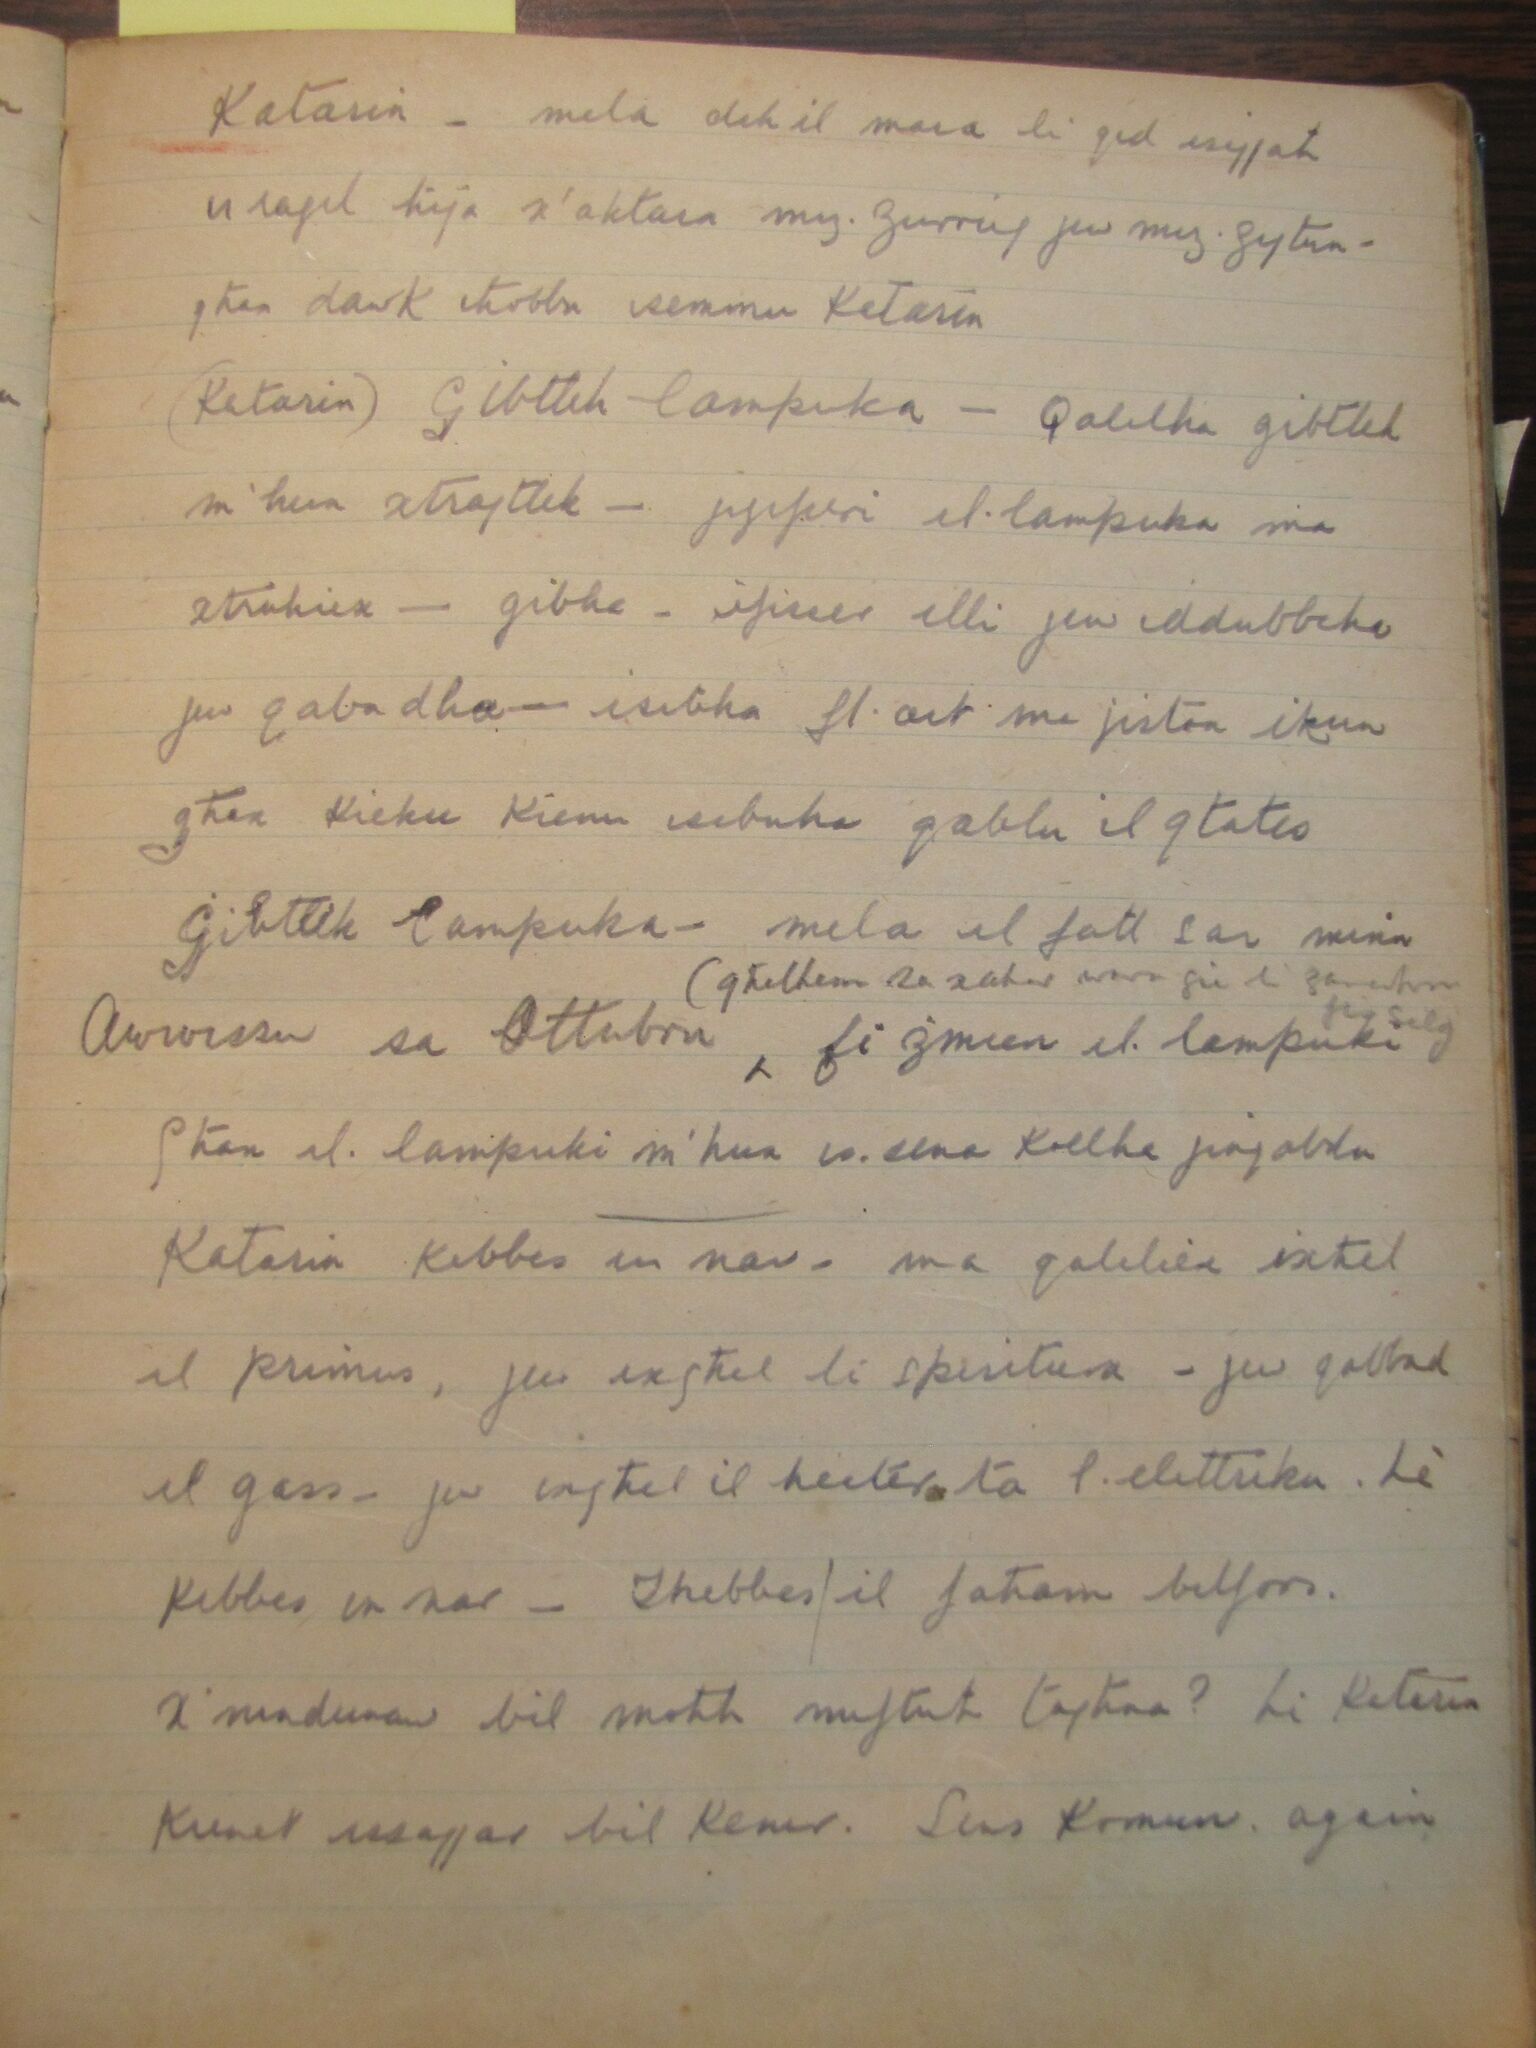 Katarin - mela deh il mara li qed isejjah
ir ragel hija x'aktarx miz. Zurrieq jew miz. Zejtun -
ghax dawk ihobbu isemmu Katarin
(Katarin) Ġibtlek lampuka - Qalilha gibtlek
m'hux xtrajtlek - jigifieri il. lampuka ma
xtrahiex - gibha - ifisser illi jew iddubbaha
jew qabadha - isibha fl. art ma jistax ikun
ghax kieku kienu isibuha qablu il qtates
Ġibtlek lampuka - mela il fatt sar minn
(ghelhem sa xahar wara
Awwissu sa Ottubru fi żmien il. lampuki
Ghax il. lampuki m'hux is. sena kollha jinqabdu
Katarin kebbes in nar - ma qaliliex ixhel
il primus, jew ixghel li spiritiera - jew qabbad
il gass - jew ixghel il heeter ta l. elettriku. Li
kebbes in nar - Tkebbes il faham bilfors.
X'nindunaw bil mohh miftuh taghna? Li Katarin
kienet issajjar bil kenur. Sens Komun. again